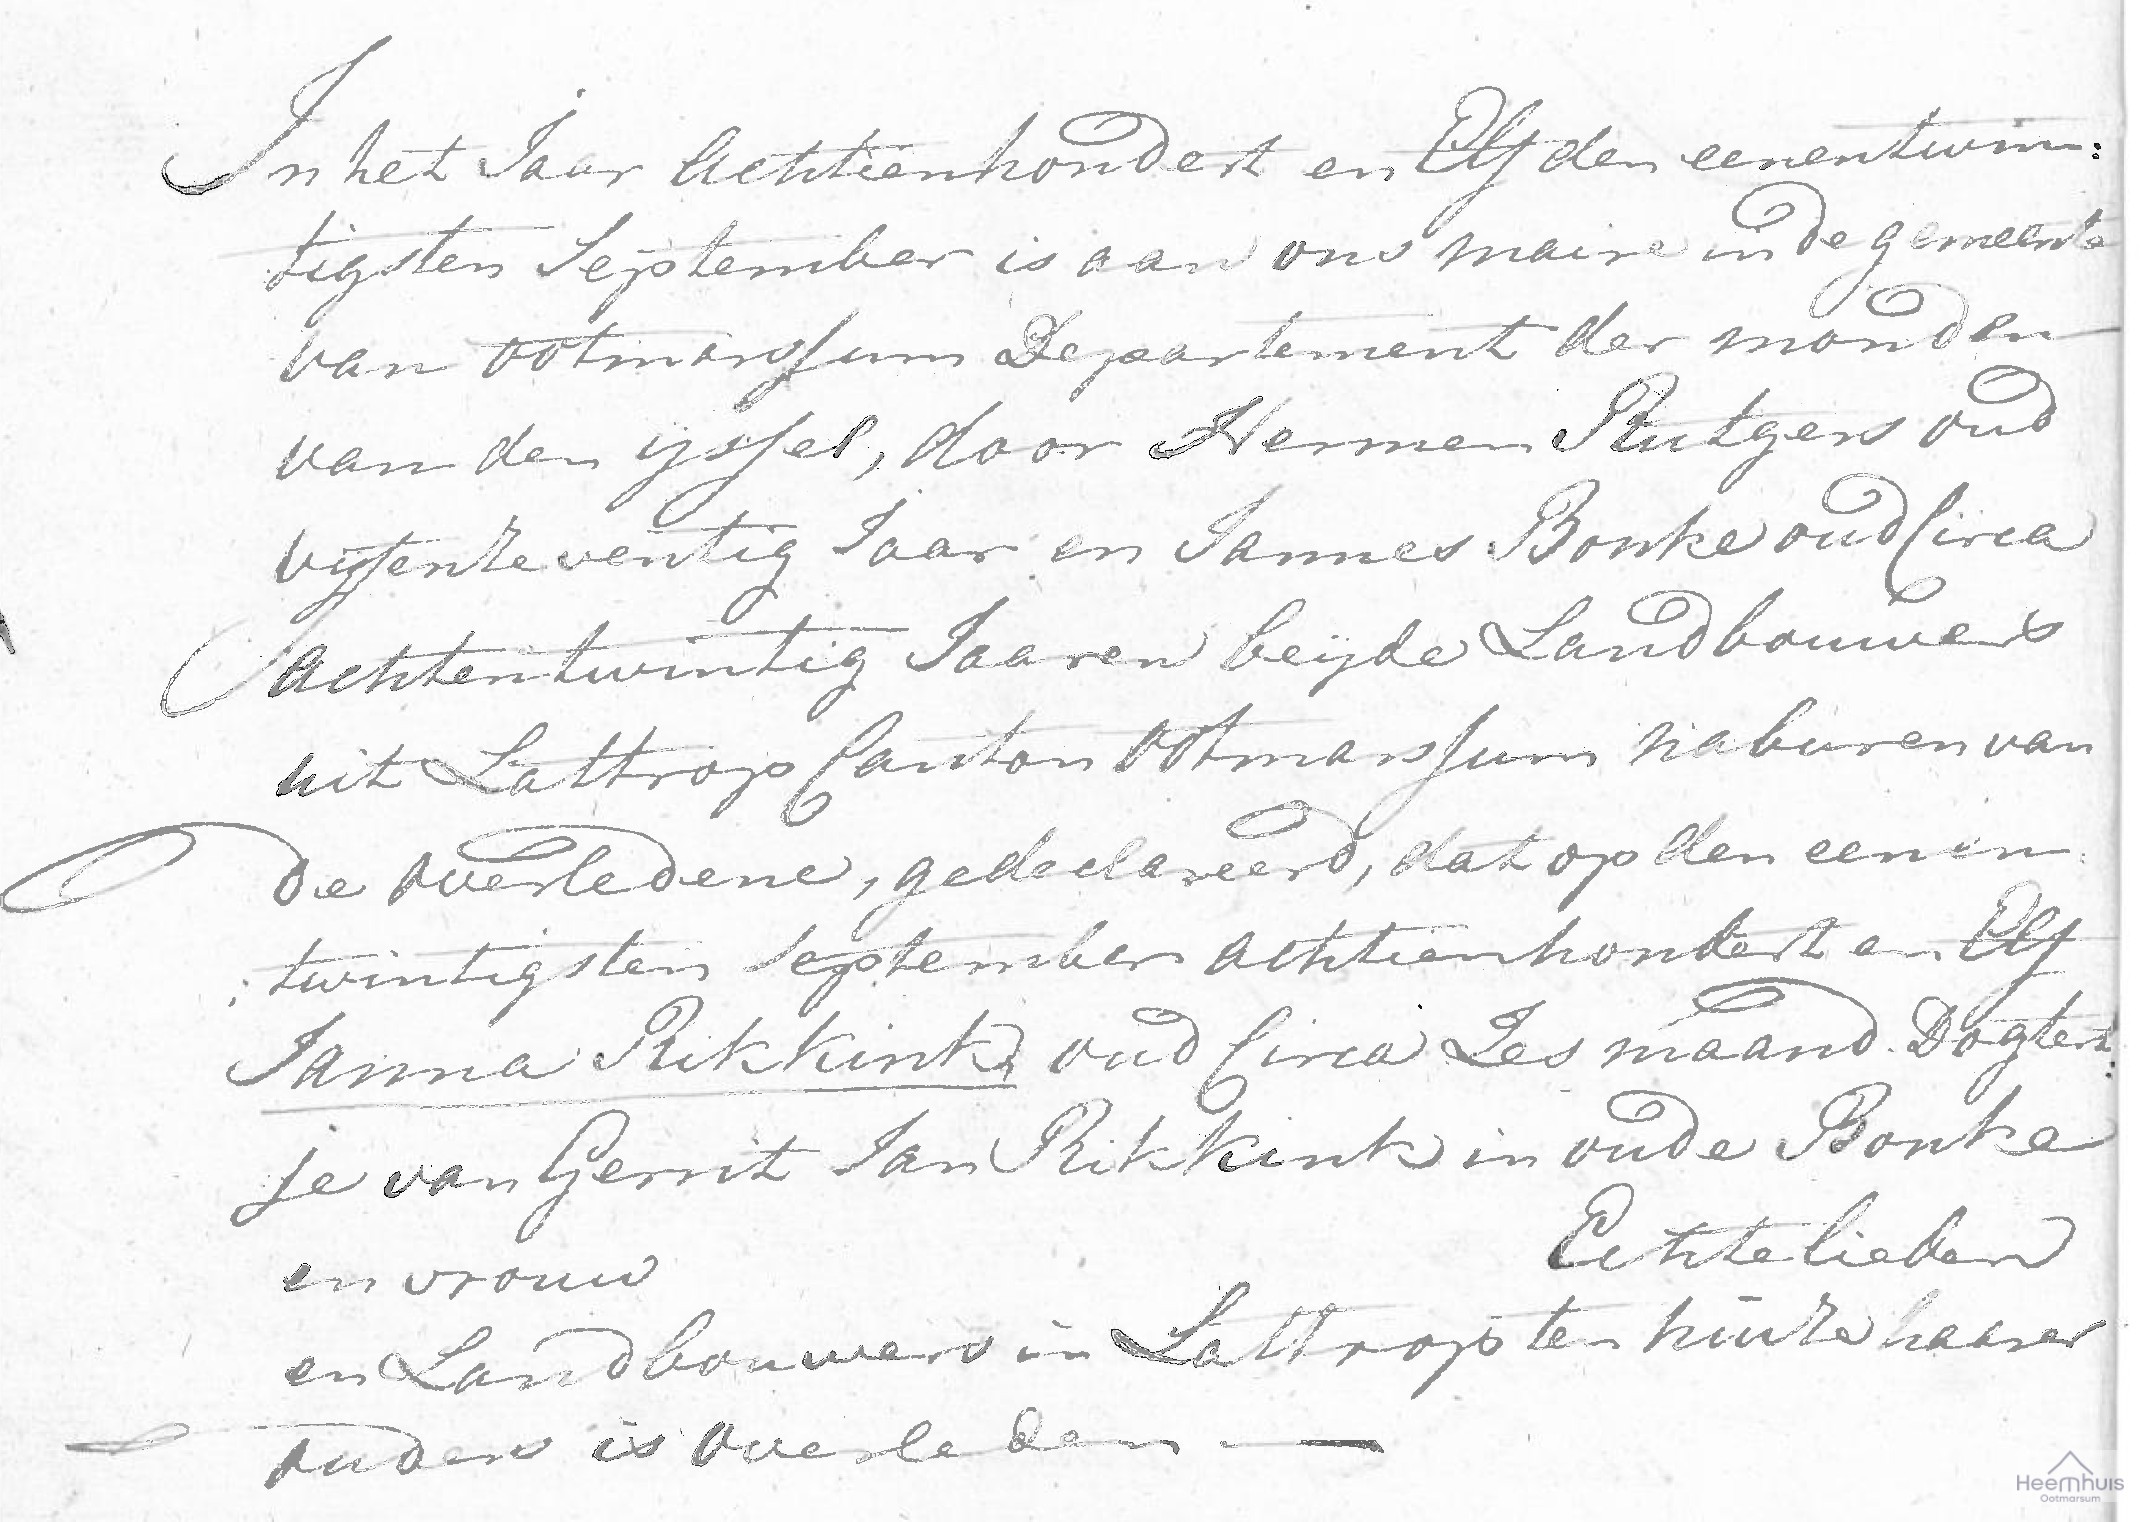 In het Jaar Achtienhondert en Elf den eenentwin:
tigsten September is aan ons maire in de gemeente
van ootmarssum Departement der monden
van den ijssel, door Hermen Rutgers oud
vijfenzeventig Jaar en Jannes Bonke oud Circa
Achtentwintig Jaaren beijde Landbouwers
uit Lattrop Canton Ootmarssum naburen van
de overledene, gedeclareerd, dat op den eenen
: twintigsten September achtienhondert en Elf
Janna Rikkink oud Circa Zes maand. Dogtert:
je van Gerrit Jan Rikkink in oude Bonke
en vrouw Echtelieden
en Landbouwers in Lattrop ten huize haarer
ouders is overleden. —
Heemhuis
Ootmarsum